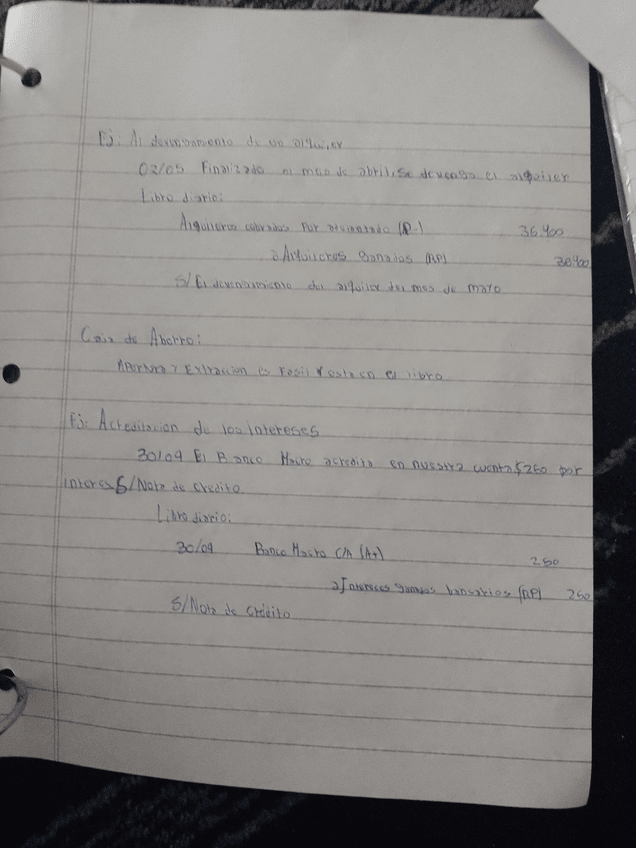 Ej: Al devengamiento de un alquiler
02/05 Finalizado el mes de abril, se devenga el alquiler
Libro diario:
Alquileres cobrados por adelantado (P-) 36.400
a Alquileres ganados (RP) 36.400
S/ El devengamiento del alquiler del mes de mayo
Caja de Ahorro:
Apertura y Extraccion es facil y esta en el libro
Ej: Acreditacion de los intereses
30/09 El Banco Macro acredita en nuestra cuenta $250 por
interes S/Nota de credito.
Libro diario:
30/09 Banco Macro C/A (A+) 250
a Intereses ganados bancarios (RP) 250
S/Nota de Crédito